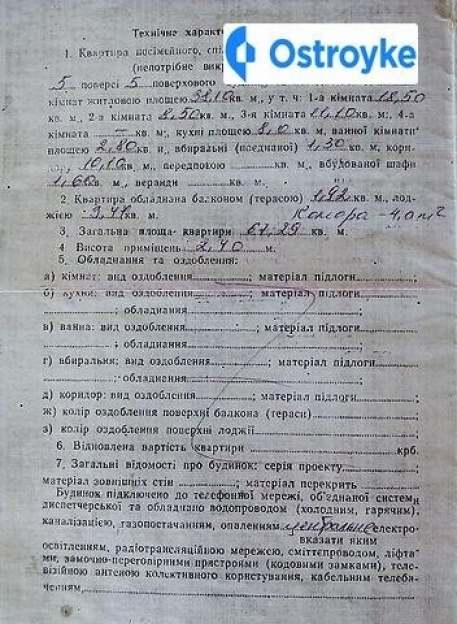 Ostroyke
Технічне
1. Квартира посімейного,
(непотрібне
5 поверсі 5 поверхового
кімнат житловою площею 38,10 кв. м., у т. ч: 1-а кімната 18,50
кв. м., 2-а кімната 8,50 кв. м., 3-я кімната 11,10 кв. м; 4-а
кімната — кв. м; кухні площею 8,0 кв. м, ванної кімнати
площею 2,80 кв. м, вбиральні (поєднаної) 1,30 кв. м, кори-
10,10 кв. м., передпокою кв. м., вбудованої шафи
1,60 кв. м., веранди кв. м.
2. Квартира обладнана балконом (терасою) 1,92 кв. м., лод-
жією 3,41 кв. м. Комора - 4,0 м²
3. Загальна площа квартири 67,29 кв. м.
4. Висота приміщень 2,40 м.
5. Обладнання та оздоблення:
а) кімнат: вид оздоблення; матеріал підлоги;
б) кухні: вид оздоблення; матеріал підлоги
; обладнання;
в) ванна: вид оздоблення; матеріал підлоги
; обладнання;
г) вбиральня: вид оздоблення; матеріал підлоги
; обладнання;
д) коридор: вид оздоблення; матеріал підлоги;
ж) колір оздоблення поверхні балкона (тераси);
з) колір оздоблення поверхні лоджії
6. Відновлена вартість квартири крб.
7. Загальні відомості про будинок: серія проекту;
матеріал зовнішніх стін; матеріал перекрить
Будинок підключено до телефонної мережі, об'єднаної системи
диспетчерської та обладнано водопроводом (холодним, гарячим),
каналізацією, газопостачанням, опаленням центральне електро-
вказати яким
освітленням, радіотрансляційною мережею, сміттєпроводом, ліфта-
ми, замочно-переговорними пристроями (кодовими замками), теле-
візійною антеною колективного користування, кабельним телеба-
ченням,